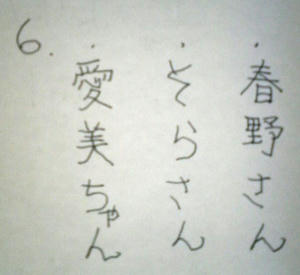 ・春野さん
・そらさん
・愛美ちゃん
6.